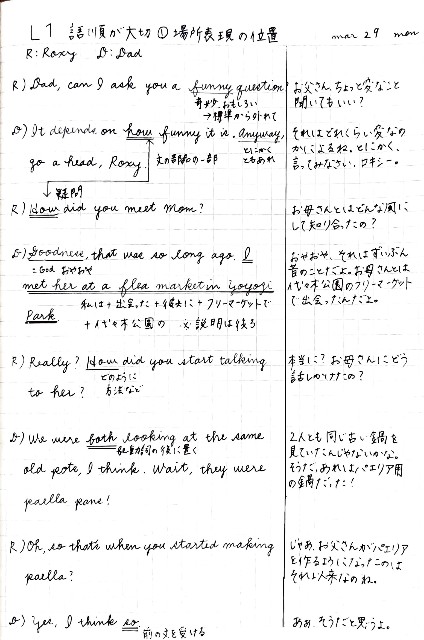 L1 語順が大切 ① 場所表現の位置
mar 29 mon
R: Roxy D: Dad
R) Dad, can I ask you a funny question
奇妙、おもしろい
→標準から外れて
お父さん、ちょっと変なこと
聞いてもいい?
D) It depends on how funny it is. Anyway,
とにかく
ともあれ
go a head, Roxy.
文の部品の一部
それはどれくらい変なの
かによるね。とにかく、
言ってみなさい、ロキシー。
疑問
R) How did you meet Mom?
お母さんとはどんな風に
して知り合ったの?
D) Goodness, that was so long ago. I
=God おやおや
met her at a flea market in Yoyogi
私は+出会った+彼女に+フリーマーケットで
Park.
+代々木公園の ※説明は後ろ
おやおや、それはずいぶん
昔のことだよ。お母さんとは
代々木公園のフリーマーケット
で出会ったんだよ。
R) Really? How did you start talking
どのように
to her?
方法など
本当に? お母さんにどう
話しかけたの?
D) We were both looking at the same
be動詞の後に置く
old pots, I think. Wait, they were
paella pans!
2人とも同じ古い鍋を
見ていたんじゃないかな。
そうだ、あれはパエリア用
の鍋だった!
R) Oh, so that's when you started making
paella?
じゃあ、お父さんがパエリア
を作るようになったのは
それ以来なのね。
D) Yes, I think so
前の文を受ける
ああ、そうだと思うよ。